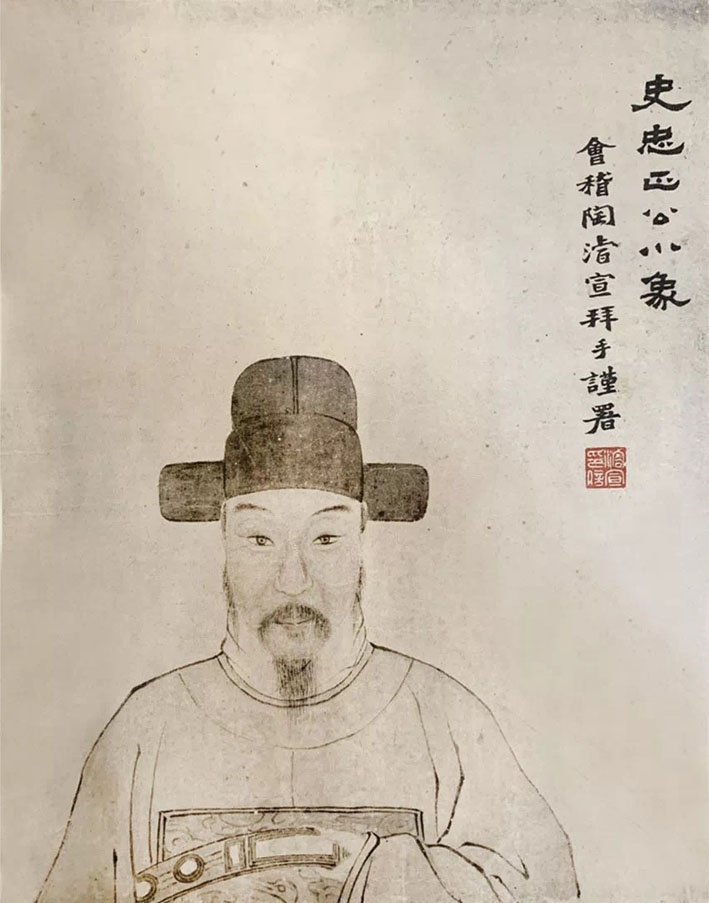 史忠正公小象
會稽陶濬宣拜手謹署